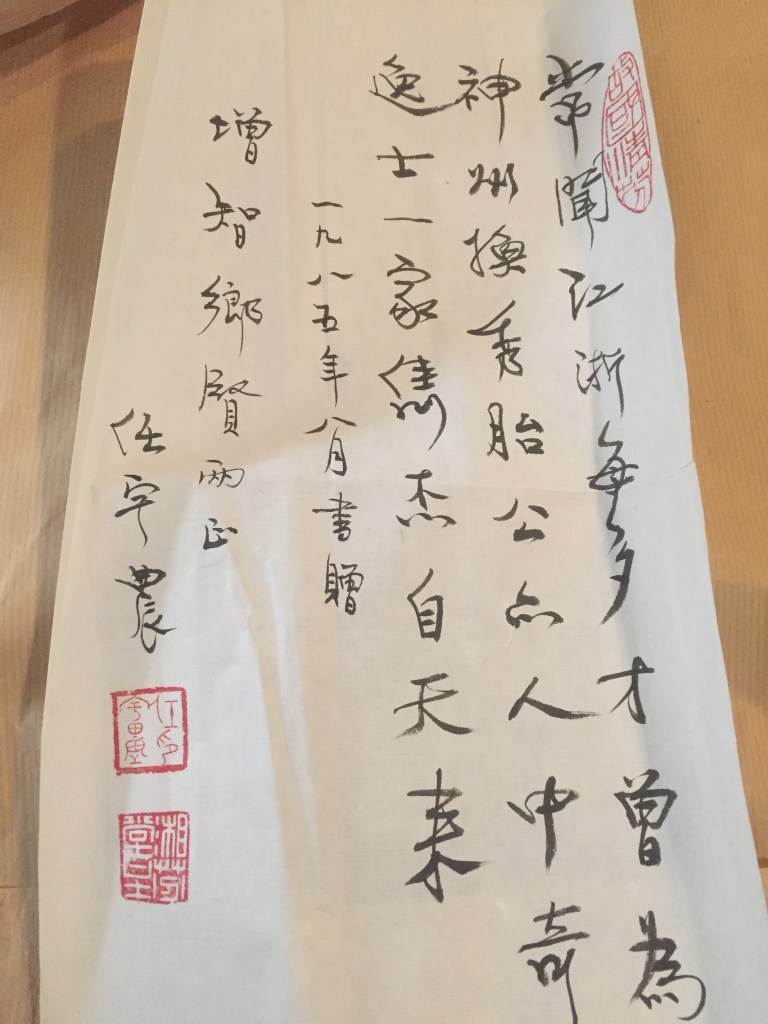 常聞江浙每多才曾為
神州換秀胎公亦人中奇
逸士一家雋杰自天來
一九八五年八月書贈
增智鄉賢兩正
任宇農